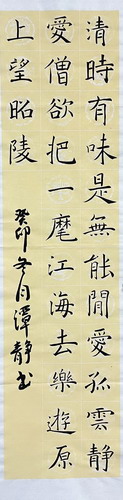 清時有味是無能閒愛孤雲靜
愛僧欲把一麾江海去樂遊原
上望昭陵
癸卯冬月潭靜书